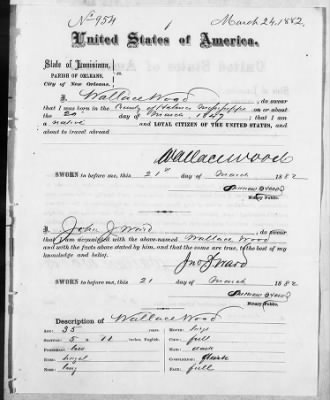 No 954
March 24, 1882.
United States of America.
State of Louisiana,
PARISH OF ORLEANS,
City of New Orleans.
I, Wallace Wood, do swear
that I was born in the County of Mississippi on or about
the 20th day of March 1847; that I am
a native and LOYAL CITIZEN OF THE UNITED STATES, and
about to travel abroad
Wallace Wood
SWORN to before me, this 21st day of March 1882
Notary Public.
I, John J Ward, do swear
that I am acquainted with the above-named Wallace Wood
and with the facts above stated by him, and that the same are true, to the best of my
knowledge and belief.
Jno J Ward
SWORN to before me, this 21 day of March 1882
Notary Public.
Description of Wallace Wood
Age: 35 years. Mouth: large
Stature: 5 - 11 inches, English. Chin: full
Forehead: low Hair: dark
Eyes: hazel Complexion: dark
Nose: long Face: full